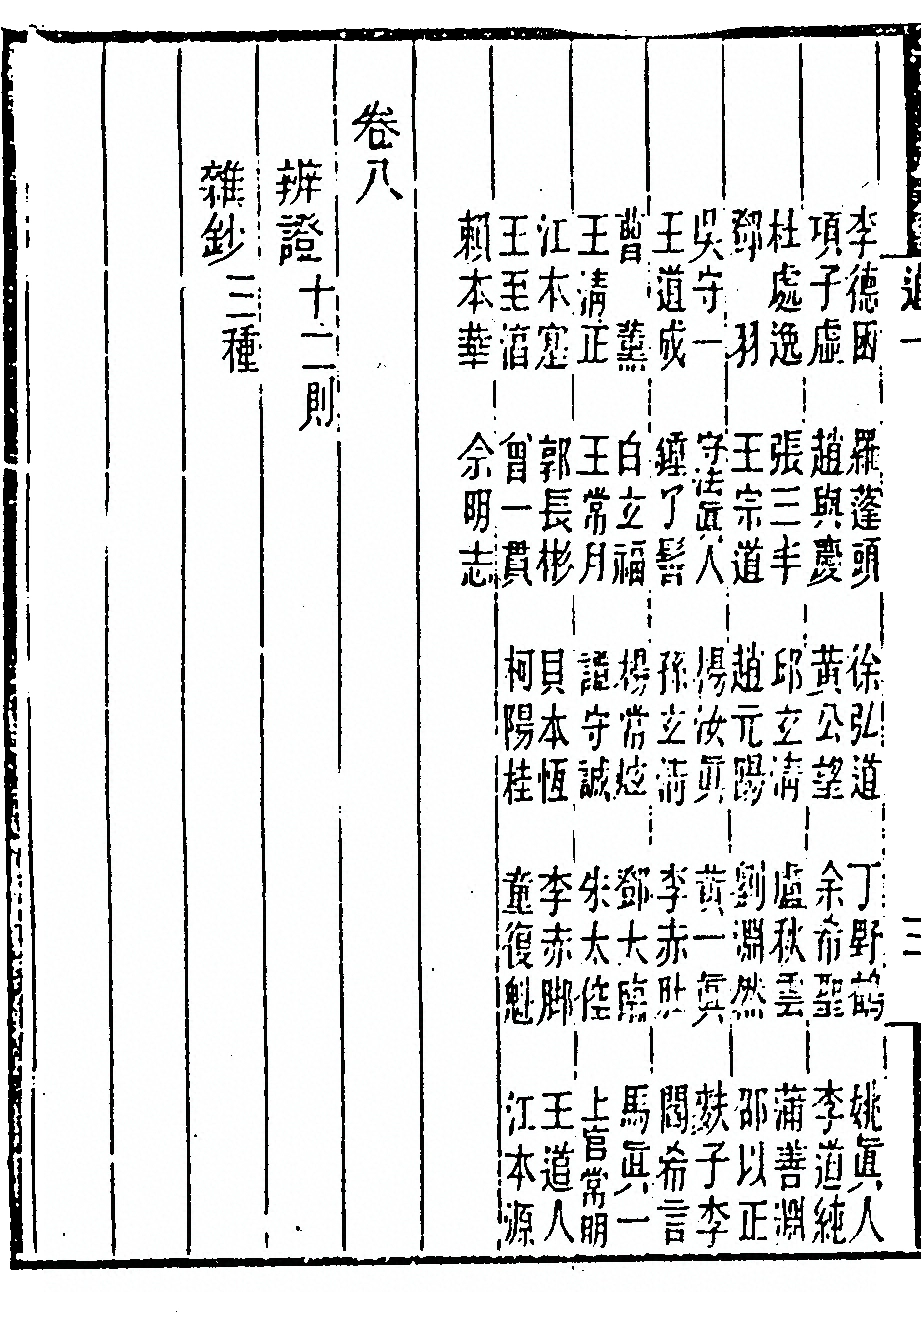 李德困 羅蓬頭 徐弘道 丁野鶴 姚眞人
項子虛 趙與慶 黃公望 余希聖 李道純
杜處逸 張三丰 邱立清 盧秋雲 蒲善淵
鄧羽 王宗道 趙元陽 劉淵然 邵以正
吳守一 守法眞人 楊汝眞 黃一眞 麩子李
王道成 鍾了髻 孫立清 李赤肚 閻希言
曹薰 白立福 楊常炫 鄧大臨 馬眞一
王清正 王常月 譚守誠 朱太倥 上官常明
江本寔 郭長彬 貝本恆 李赤脚 王道人
王至 曾一貫 柯陽桂 童復魁 江本源
賴本華 佘明志
卷八
辨證十二則
雜鈔三種
三